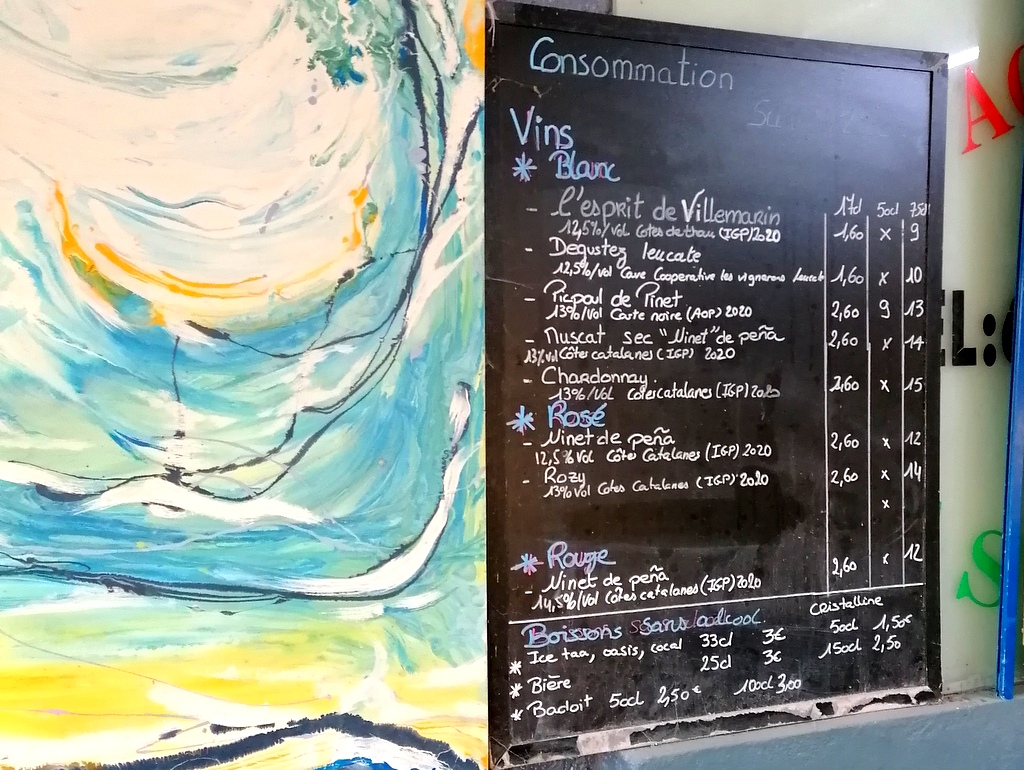 Consommation
Vins
* Blanc
17cl 50cl 75cl
- l'esprit de Villemarin
12,5%/Vol Côtes de thau (IGP) 2020 1,60 x 9
- Degustez leucate
12,5%/vol Cave Cooperative les vignerons leucate 1,60 x 10
- Picpoul de Pinet
13%/Vol Carte noire (AOP) 2020 2,60 9 13
- Muscat sec "Ninet" de peña 2,60 x 14
13%vol Côtes catalanes (IGP) 2020
- Chardonnay
13%/Vol Cotes catalanes (IGP) 2020 2,60 x 15
* Rosé
- Ninet de peña 2,60 x 12
12,5%Vol Côtes Catalanes (IGP) 2020
- Rozy 2,60 x 14
13%Vol Cotes Catalanes (IGP) 2020
x
* Rouge
- Ninet de peña 2,60 x 12
14,5%/Vol Côtes catalanes (IGP) 2020
Boissons sans alcool
Cristalline
50cl 1,50€
150cl 2,50
* Ice tea, oasis, coca 33cl 3€
* Bière 25cl 3€
* Badoit 50cl 2,50€ 100cl 3,00
A
EL:
S